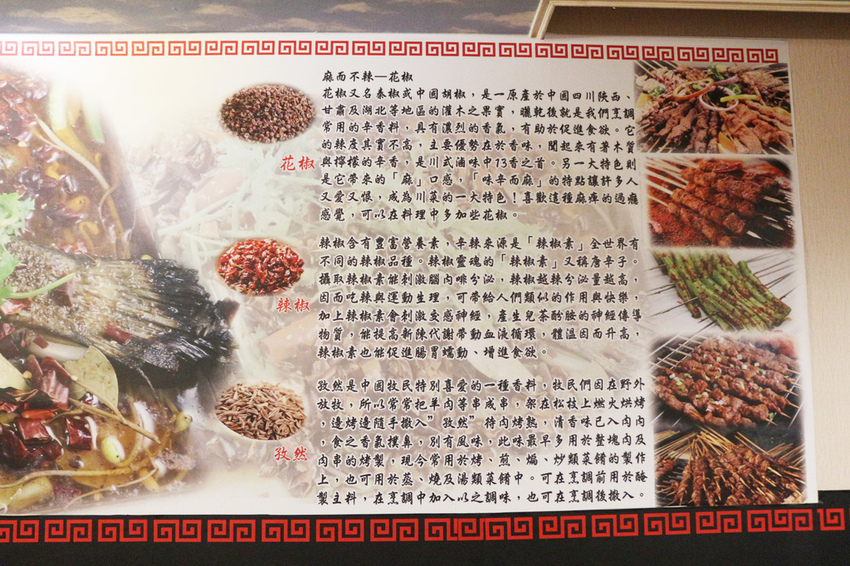 麻而不辣—花椒
花椒又名秦椒或中國胡椒，是一原產於中國四川陝西、
甘肅及湖北等地區的灌木之果實，曬乾後就是我們烹調
常用的辛香料，具有濃烈的香氣，有助於促進食慾。它
的辣度其實不高，主要優勢在於香味，聞起來有著木質
與檸檬的辛香，是川式滷味中13香之首。另一大特色則
是它帶來的「麻」口感，「味辛而麻」的特點讓許多人
又愛又恨，成為川菜的一大特色！喜歡這種麻痺的過癮
感覺，可以在料理中多加些花椒。
花椒
辣椒含有豐富營養素，辛辣來源是「辣椒素」全世界有
不同的辣椒品種。辣椒靈魂的「辣椒素」又稱唐辛子。
攝取辣椒素能刺激腦內啡分泌，辣椒越辣分泌量越高，
因而吃辣與運動生理，可帶給人們類似的作用與快樂，
加上辣椒素會刺激交感神經，產生兒茶酚胺的神經傳導
物質，能提高新陳代謝帶動血液循環，體溫因而升高，
辣椒素也能促進腸胃蠕動、增進食慾。
辣椒
孜然是中國牧民特別喜愛的一種香料，牧民們因在野外
放牧，所以常常把羊肉等串成串，架在松枝上燃火烘烤
，邊烤邊隨手撒入”孜然”待肉烤熟，清香味已入肉內
，食之香氣撲鼻，別有風味，此味最早多用於整塊肉及
肉串的烤製，現今常用於烤、煎、煸、炒類菜餚的製作
上，也可用於蒸、燒及湯類菜餚中。可在烹調前用於醃
製主料，在烹調中加入以之調味，也可在烹調後撒入。
孜然